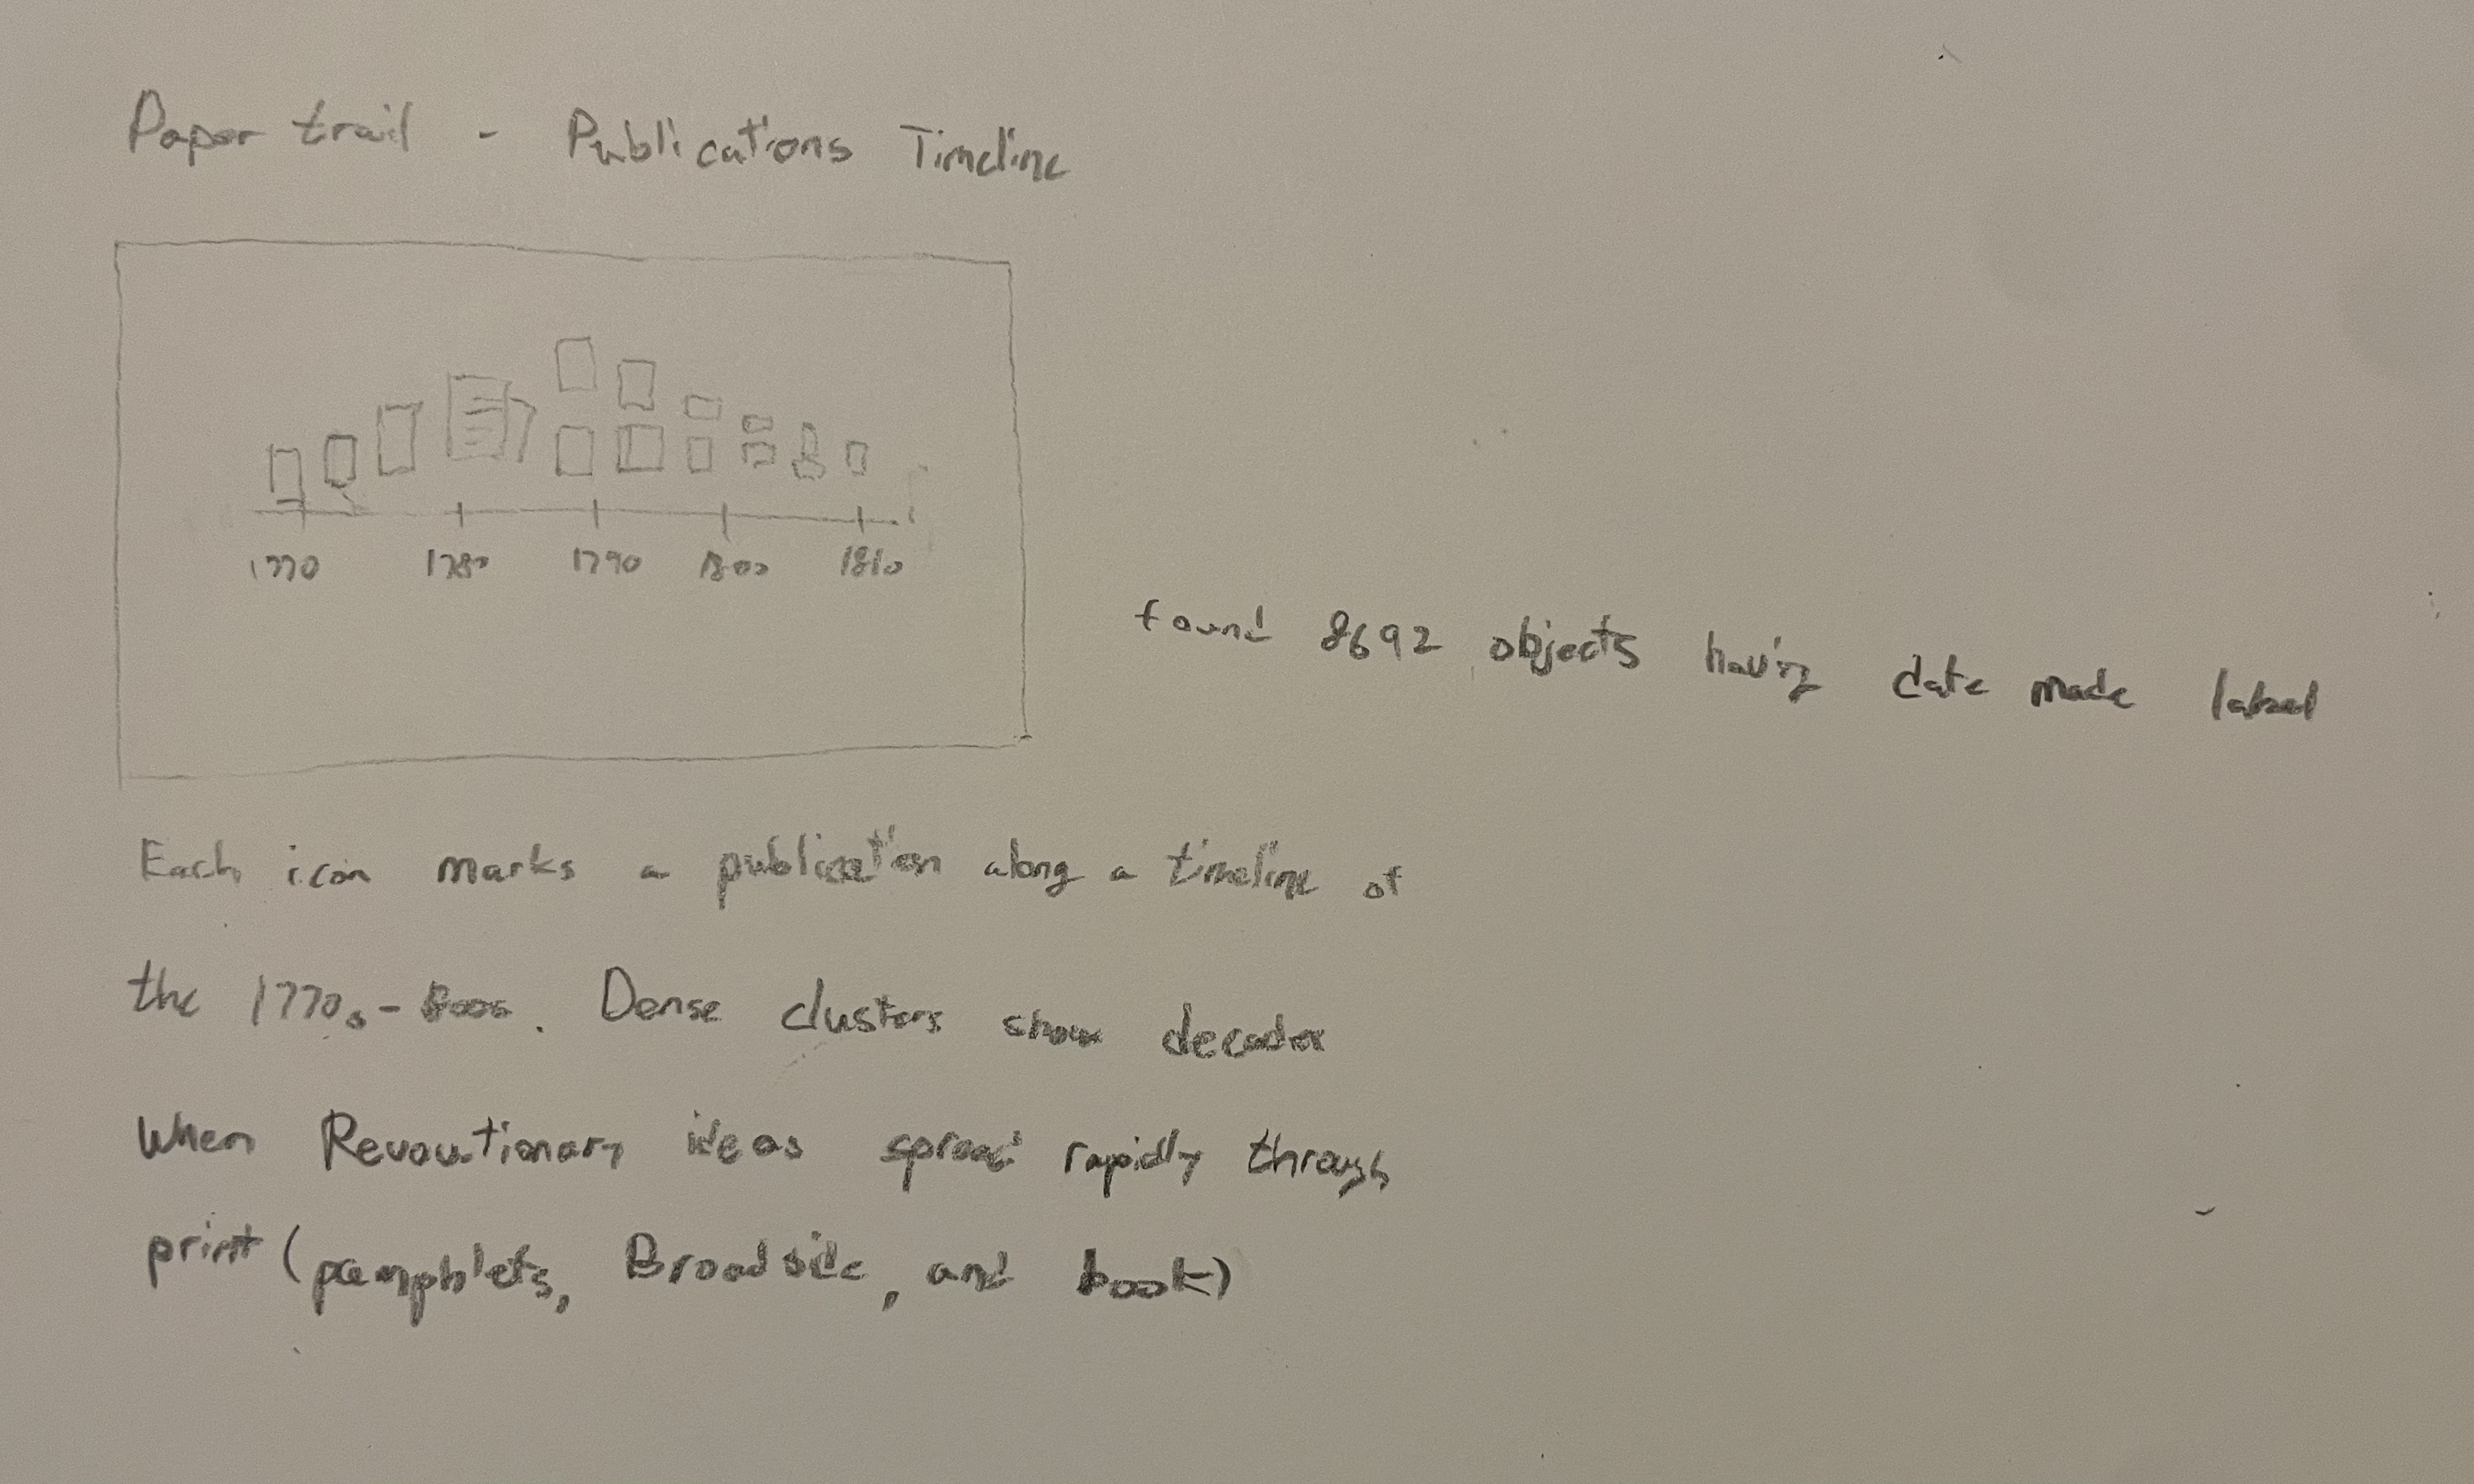 Paper trail - Publications Timeline
1770 1780 1790 1800 1810
found 8692 objects having date made label
Each icon marks a publication along a timeline of
the 1770s - 1800s. Dense clusters show decades
When Revoutionary ideas spread rapidly through
print (pamphlets, Broadside, and book)